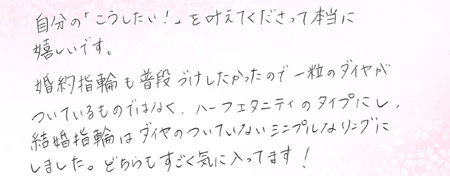 自分の「こうしたい!」を叶えてくださって本当に
嬉しいです。
婚約指輪も普段づけしたかったので一粒のダイヤが
ついているものではなく、ハーフエタニティのタイプにし、
結婚指輪はダイヤのついていないシンプルなリングに
しました。どちらもすごく気に入ってます!